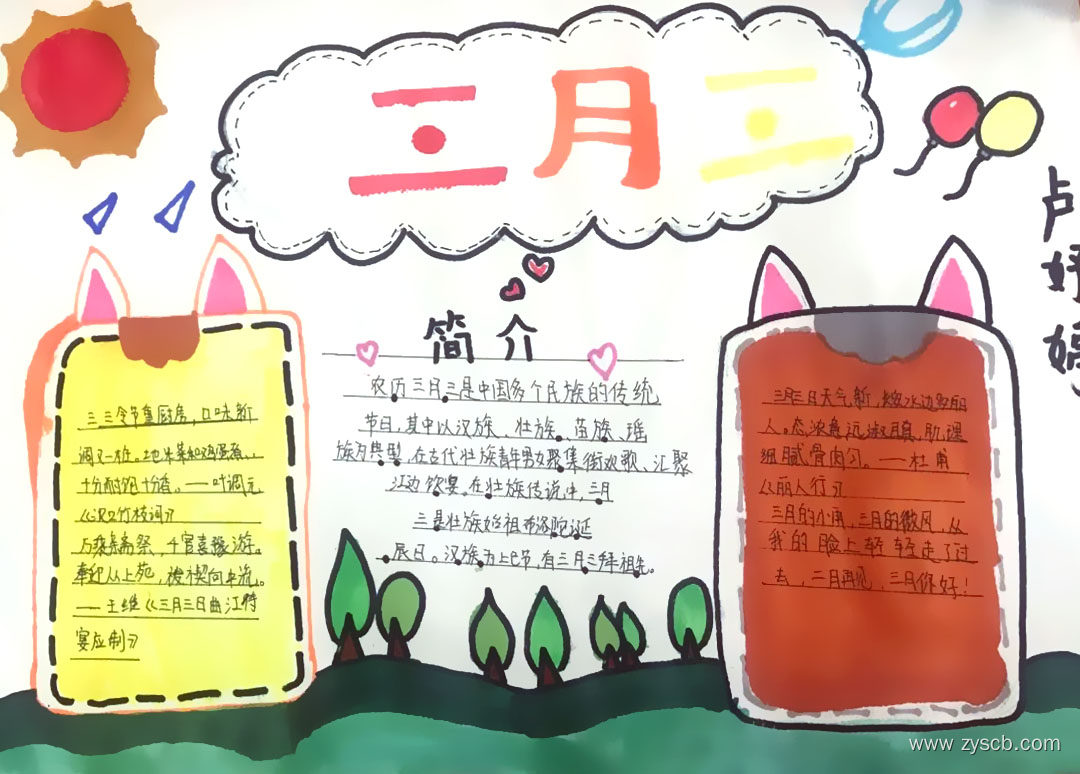 三月三
卢妤嫣
简介
农历三月三是中国多个民族的传统
节日,其中以汉族、壮族、苗族、瑶
族为典型,在古代壮族青年男女聚集街欢歌、汇聚
江边饮宴。在壮族传说中,三月
三是壮族始祖布洛陀诞
辰日。汉族为上巳节,有三月三拜祖先。
三三令节重厨房,口味新
调又一桩。地米菜和鸡蛋煮,
十分耐饱十分香。——叶调元
《汉口竹枝词》
万乘亲斋祭,千官喜豫游。
奉迎从上苑,祓禊向中流。
——王维《三月三日曲江侍
宴应制》
三月三日天气新,长安水边多丽
人。态浓意远淑且真,肌理
细腻骨肉匀。——杜甫
《丽人行》
三月的小雨,三月的微风,从
我的脸上轻轻走了过
去,二月再见,三月你好!
www.zyscb.com